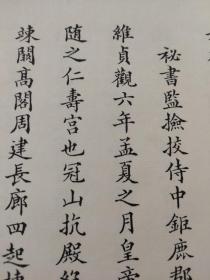 祕書監撿挍侍中鉅鹿郡
維貞觀六年孟夏之月皇帝
隨之仁壽宮也冠山抗殿絶
竦闕髙閣周建長廊四起